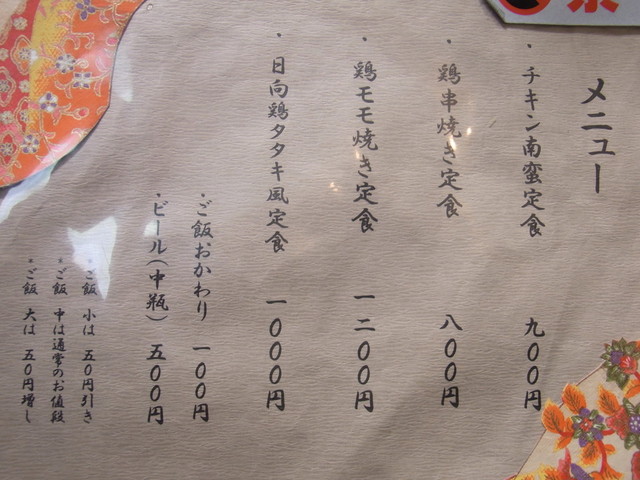 メニュー
・チキン南蛮定食 九〇〇円
・鶏串焼き定食 八〇〇円
・鶏モモ焼き定食 一二〇〇円
・日向鶏タタキ風定食 一〇〇〇円
・ご飯おかわり 一〇〇円
・ビール(中瓶) 五〇〇円
・ご飯 小は 五〇円引き
・ご飯 中は通常のお値段
・ご飯 大は 五〇円増し